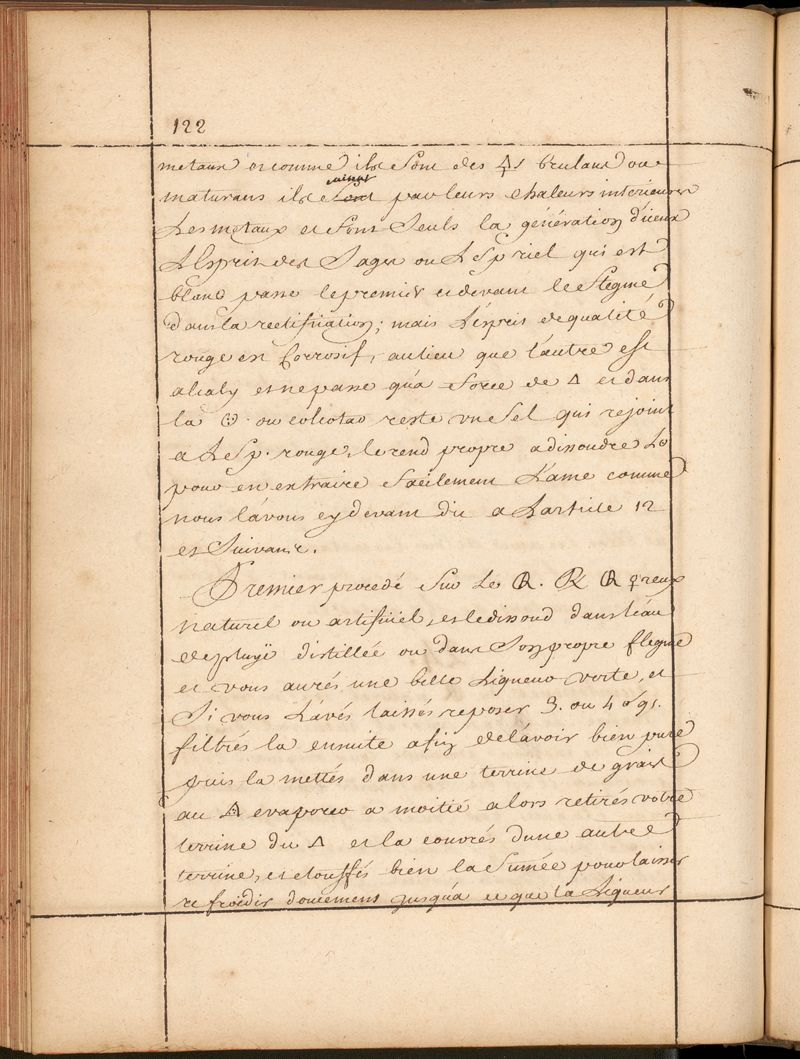 122
metaux et comme ils sont des 🜍s brulans ou
maturans ils cuisent par leurs chaleurs interieures
Les metaux et sont seuls la génération d'iceux
L'Esprit des Sages ou L Sp riel qui est
blanc passe le premier et devant le flegme
dans la rectification; mais L'ésprit de qualité
rouge est Corrosif, au lieu que l'autre est
alcaly et ne passe qu'a force de △ et dans
la ou colcotar reste un Sel qui rejoint
a L Sp. rouge, le rend propre a dissoudre Lo
pour en extraire facilement L'ame comme
nous l'avons cy devant dit a L'article 12
et Suivans.
Premier procedé Sur Le ℞. ℞ ℞ ♀reux
naturel ou artificiel, et le dissoud dans l'eau
de pluÿe distillée ou dans Son propre flegme
et vous aurés une belle Liqueur verte, et
Si vous L'avés laissés reposer 3. ou 4
filtrés la ensuite afin de l'avoir bien pure
puis la mettés dans une terrine de grais
au △ evaporer a moitié alors retirés votre
terrine du △ et la couvrés d'une autre
terrine, et etouffés bien la fumée pour laisser
refroidir doucement jusqu'a ce que la Liqueur